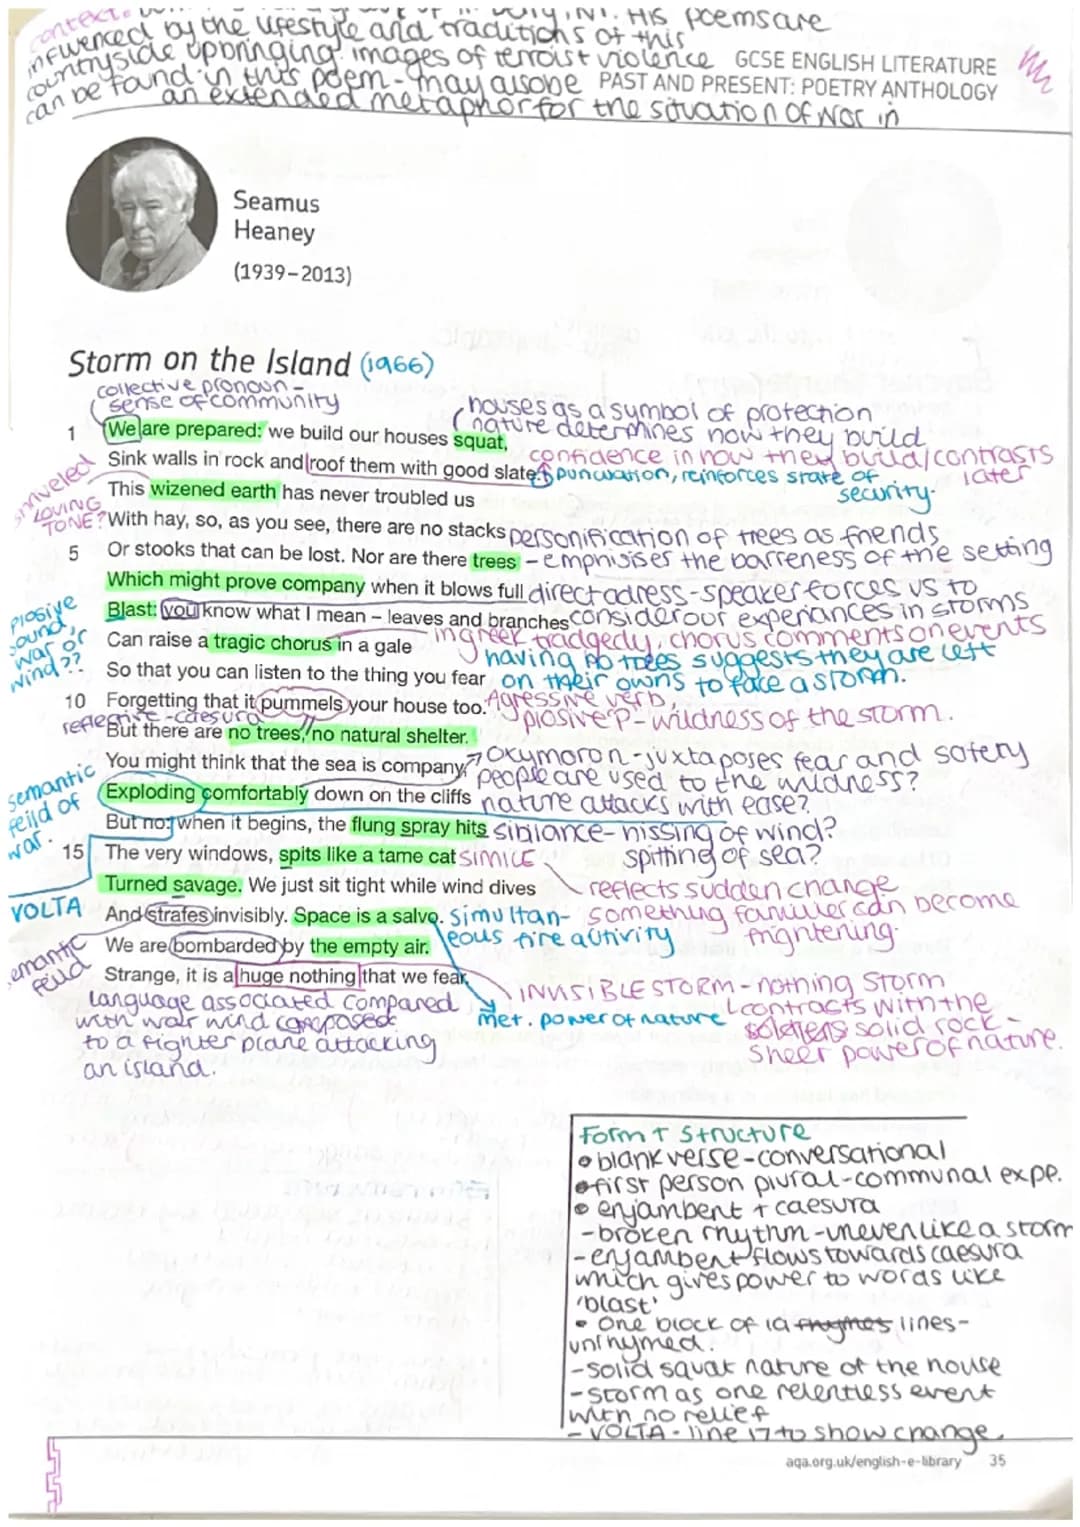 context:
His poems are
influenced by the lifestyle and traditions of this
countryside upbringing. images of terroist violence
can be found in this poem - may also be
an extended metaphor for the situation of war in
GCSE ENGLISH LITERATURE
PAST AND PRESENT: POETRY ANTHOLOGY
Seamus
Heaney
(1939–2013)
Storm on the Island (1966)
collective pronoun -
sense of community
houses as a symbol of protection
nature determines how they build
1 We are prepared: we build our houses squat,
confidence in how they build/contrasts
later
Sink walls in rock and roof them with good slate.
punuation, reinforces state of
security.
shriveled
This wizened earth has never troubled us
LOVING
TONE?
With hay, so, as you see, there are no stacks
personification of trees as friends
5 Or stooks that can be lost. Nor are there trees
- emphisises the barreness of the setting
Which might prove company when it blows full
direct adress - speaker forces us to
plosive
sound,
war or
wind??
Blast: you know what I mean – leaves and branches
consider our experiances in storms
Can raise a tragic chorus in a gale
in greek tradgedy, chorus comments on events
So that you can listen to the thing you fear
having no trees suggests they are left
on their owns to face a storm.
10 Forgetting that it pummels your house too.
Agressive verb,
plosive 'p' - wildness of the storm.
reflective - caesura
But there are no trees, no natural shelter.
You might think that the sea is company,
oxymoron - juxtaposes fear and safety
people are used to the wildness?
semantic
feild of
war.
Exploding comfortably down on the cliffs
nature attacks with ease?
But no: when it begins, the flung spray hits
siblance - hissing of wind?
spitting of sea?
15 The very windows, spits like a tame cat
SIMILE
Turned savage. We just sit tight while wind dives
reflects sudden change
something familier can become
frightening.
VOLTA
And strafes invisibly. Space is a salvo.
simultan-
eous fire activity
We are bombarded by the empty air.
semantic
feild
Strange, it is a huge nothing that we fear.
INVISIBLE STORM - nothing storm
contrasts with the
solid rock -
sheer power of nature.
met. power of nature
language associated compared
with war wind composed
to a fighter plane attacking
an island.
Form + Structure
• blank verse - conversational
• first person plural - communal expe.
• enjambent + caesura
- broken rhythm - uneven like a storm
- enjambent flows towards caesura
which gives power to words like
'blast'
• one block of 19 rhymes lines -
unrhymed.
- solid squat nature of the house
- storm as one relentless event
with no relief
- VOLTA - line 17 to show change.
aqa.org.uk/english-e-library 35